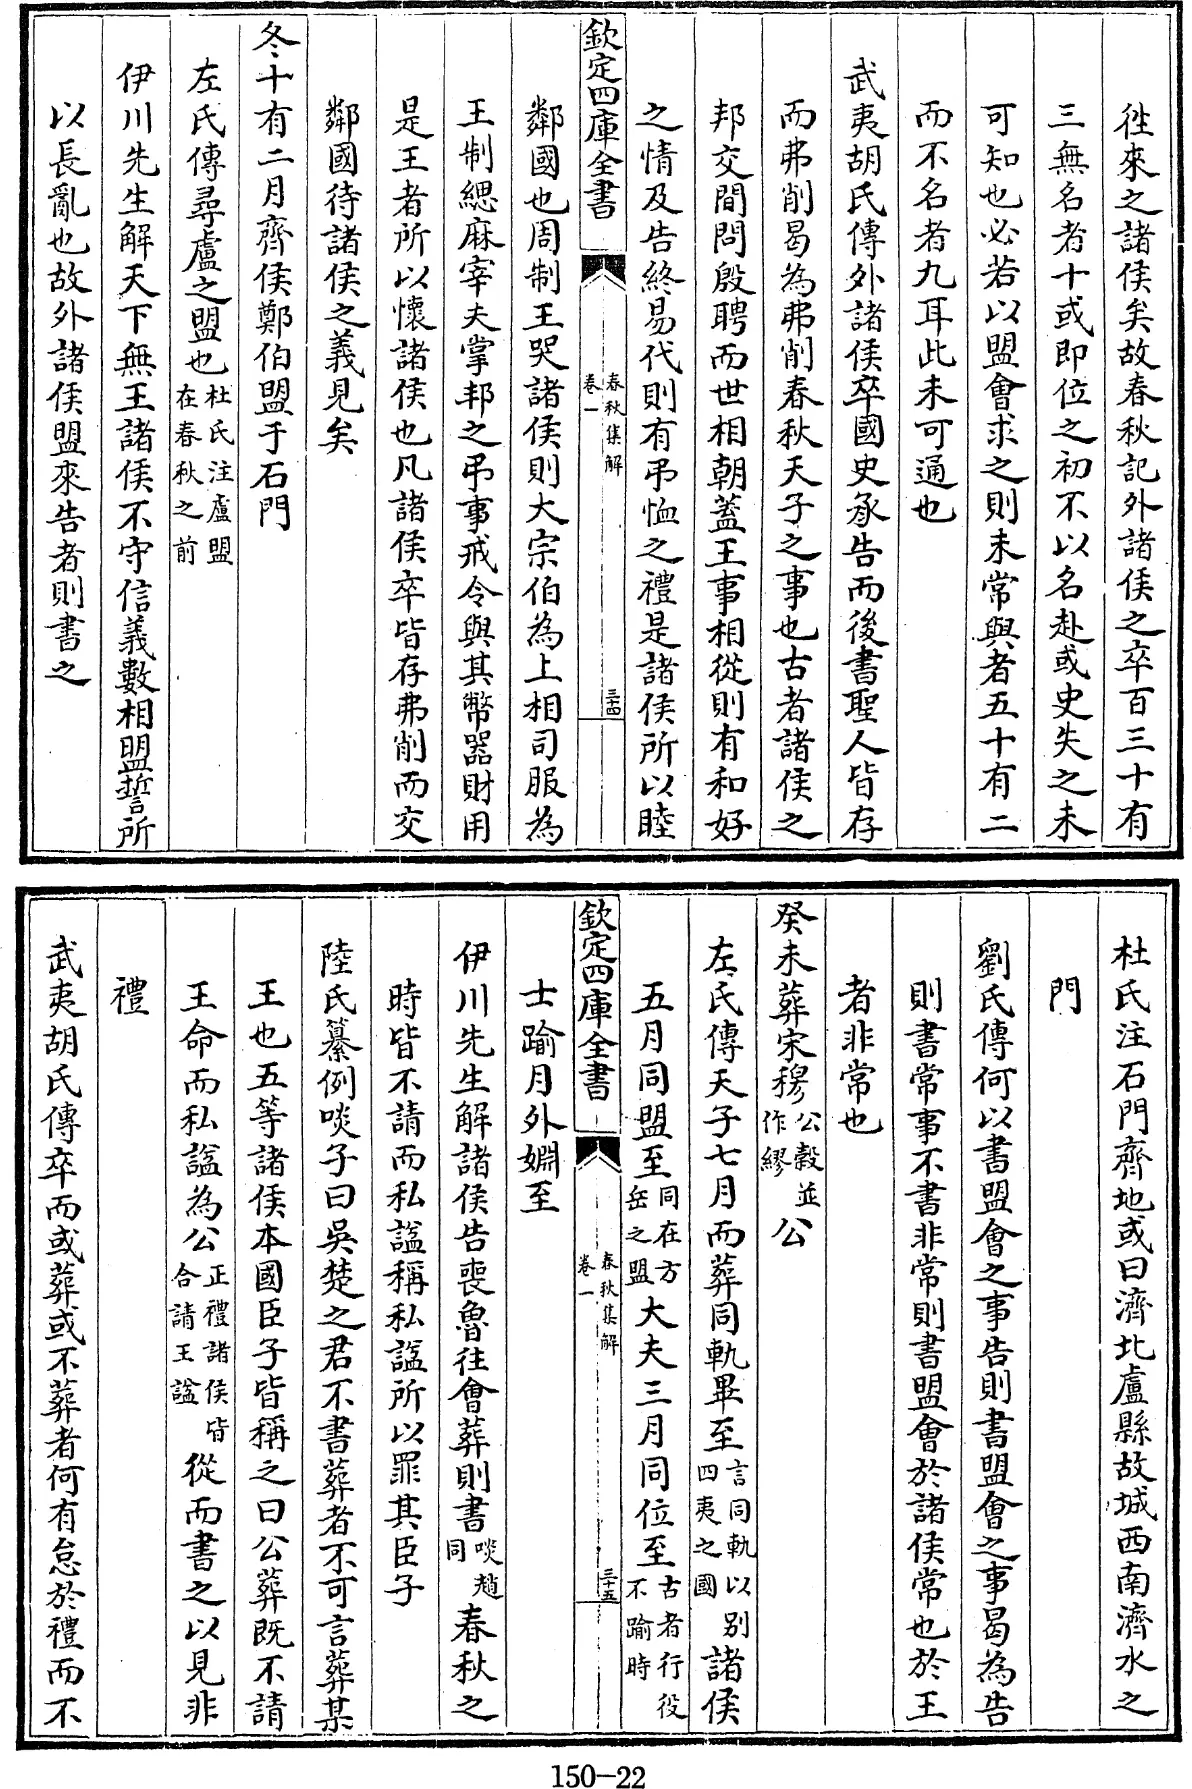 徃來之諸侯矣故春秋記外諸侯之卒百三十有
三無名者十或即位之初不以名赴或史失之未
可知也必若以盟會求之則未常與者五十有二
而不名者九耳此未可通也
武夷胡氏傳外諸侯卒國史承告而後書聖人皆存
而弗削曷為弗削春秋天子之事也古者諸侯之
邦交間問殷聘而世相朝蓋王事相從則有和好
之情及告終易代則有弔恤之禮是諸侯所以睦
欽定四庫全書
春秋集解
卷一
三十四
鄰國也周制王哭諸侯則大宗伯為上相司服為
王制緦麻宰夫掌邦之弔事戒令與其幣器財用
是王者所以懷諸侯也凡諸侯卒皆存弗削而交
鄰國待諸侯之義見矣
冬十有二月齊侯鄭伯盟于石門
左氏傳尋盧之盟也杜氏注盧盟在春秋之前
伊川先生解天下無王諸侯不守信義數相盟誓所
以長亂也故外諸侯盟來告者則書之
杜氏注石門齊地或曰濟北盧縣故城西南濟水之
門
劉氏傳何以書盟會之事告則書盟會之事曷為告
則書常事不書非常則書盟會於諸侯常也於王
者非常也
癸未葬宋穆公穀並作繆公
左氏傳天子七月而葬同軌畢至言同軌以别四夷之國諸侯
五月同盟至同在方岳之盟大夫三月同位至古者行役不踰時
欽定四庫全書
春秋集解
卷一
三十五
士踰月外姻至
伊川先生解諸侯告喪魯往會葬則書啖趙同春秋之
時皆不請而私諡稱私諡所以罪其臣子
陸氏纂例啖子曰吳楚之君不書葬者不可言葬某
王也五等諸侯本國臣子皆稱之曰公葬既不請
王命而私諡為公正禮諸侯皆合請王諡從而書之以見非
禮
武夷胡氏傳卒而或葬或不葬者何有怠於禮而不
150-22